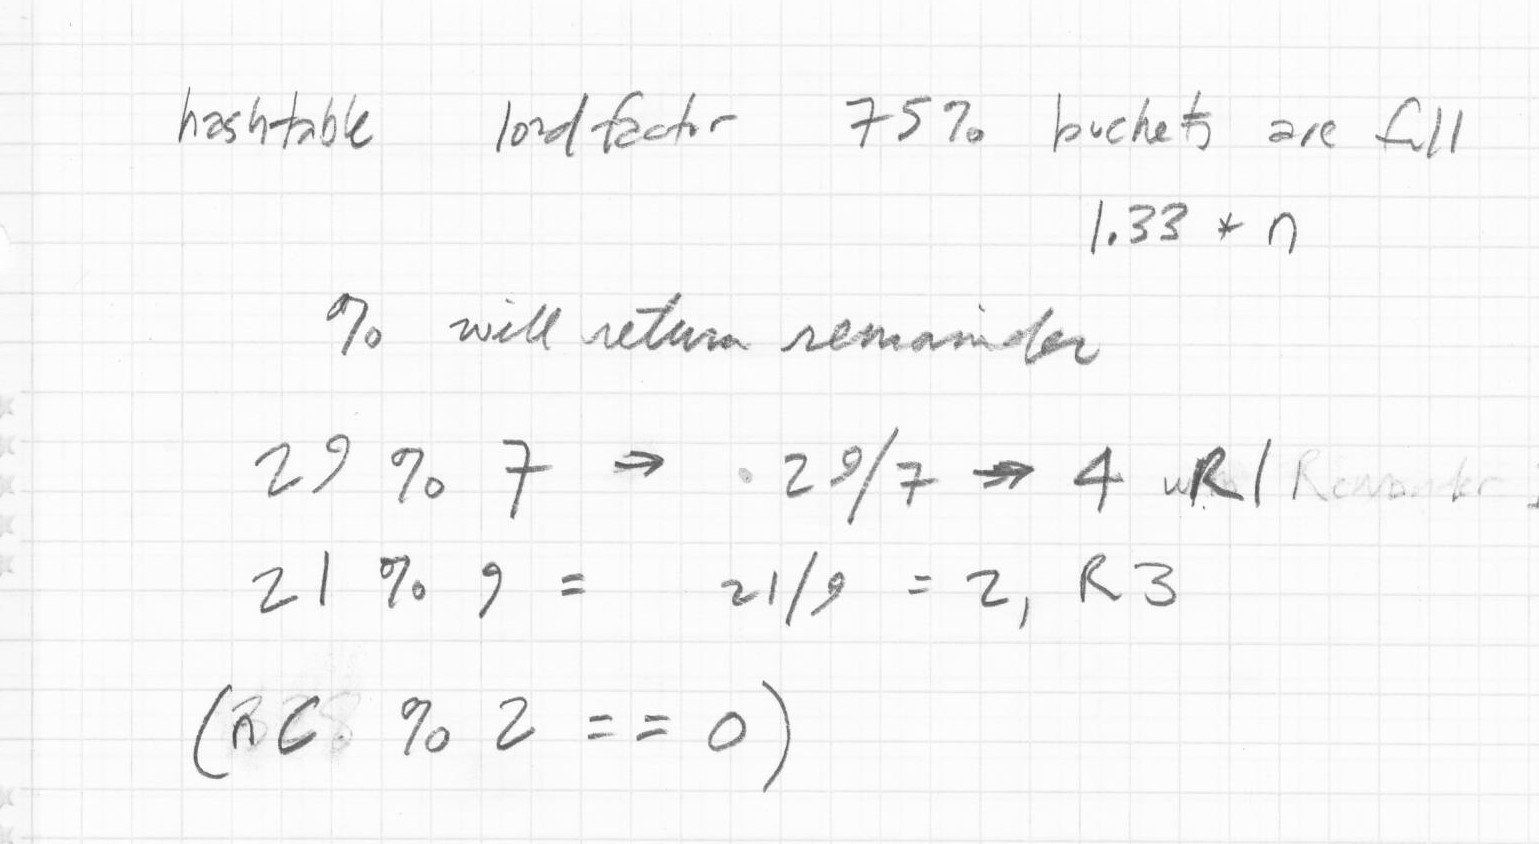 hashtable load factor 75% buckets are full
1.33 * n
% will return remainder
29 % 7 → 29/7 → 4 R1 Remainder
21 % 9 = 21/9 = 2, R3
( % 2 == 0)